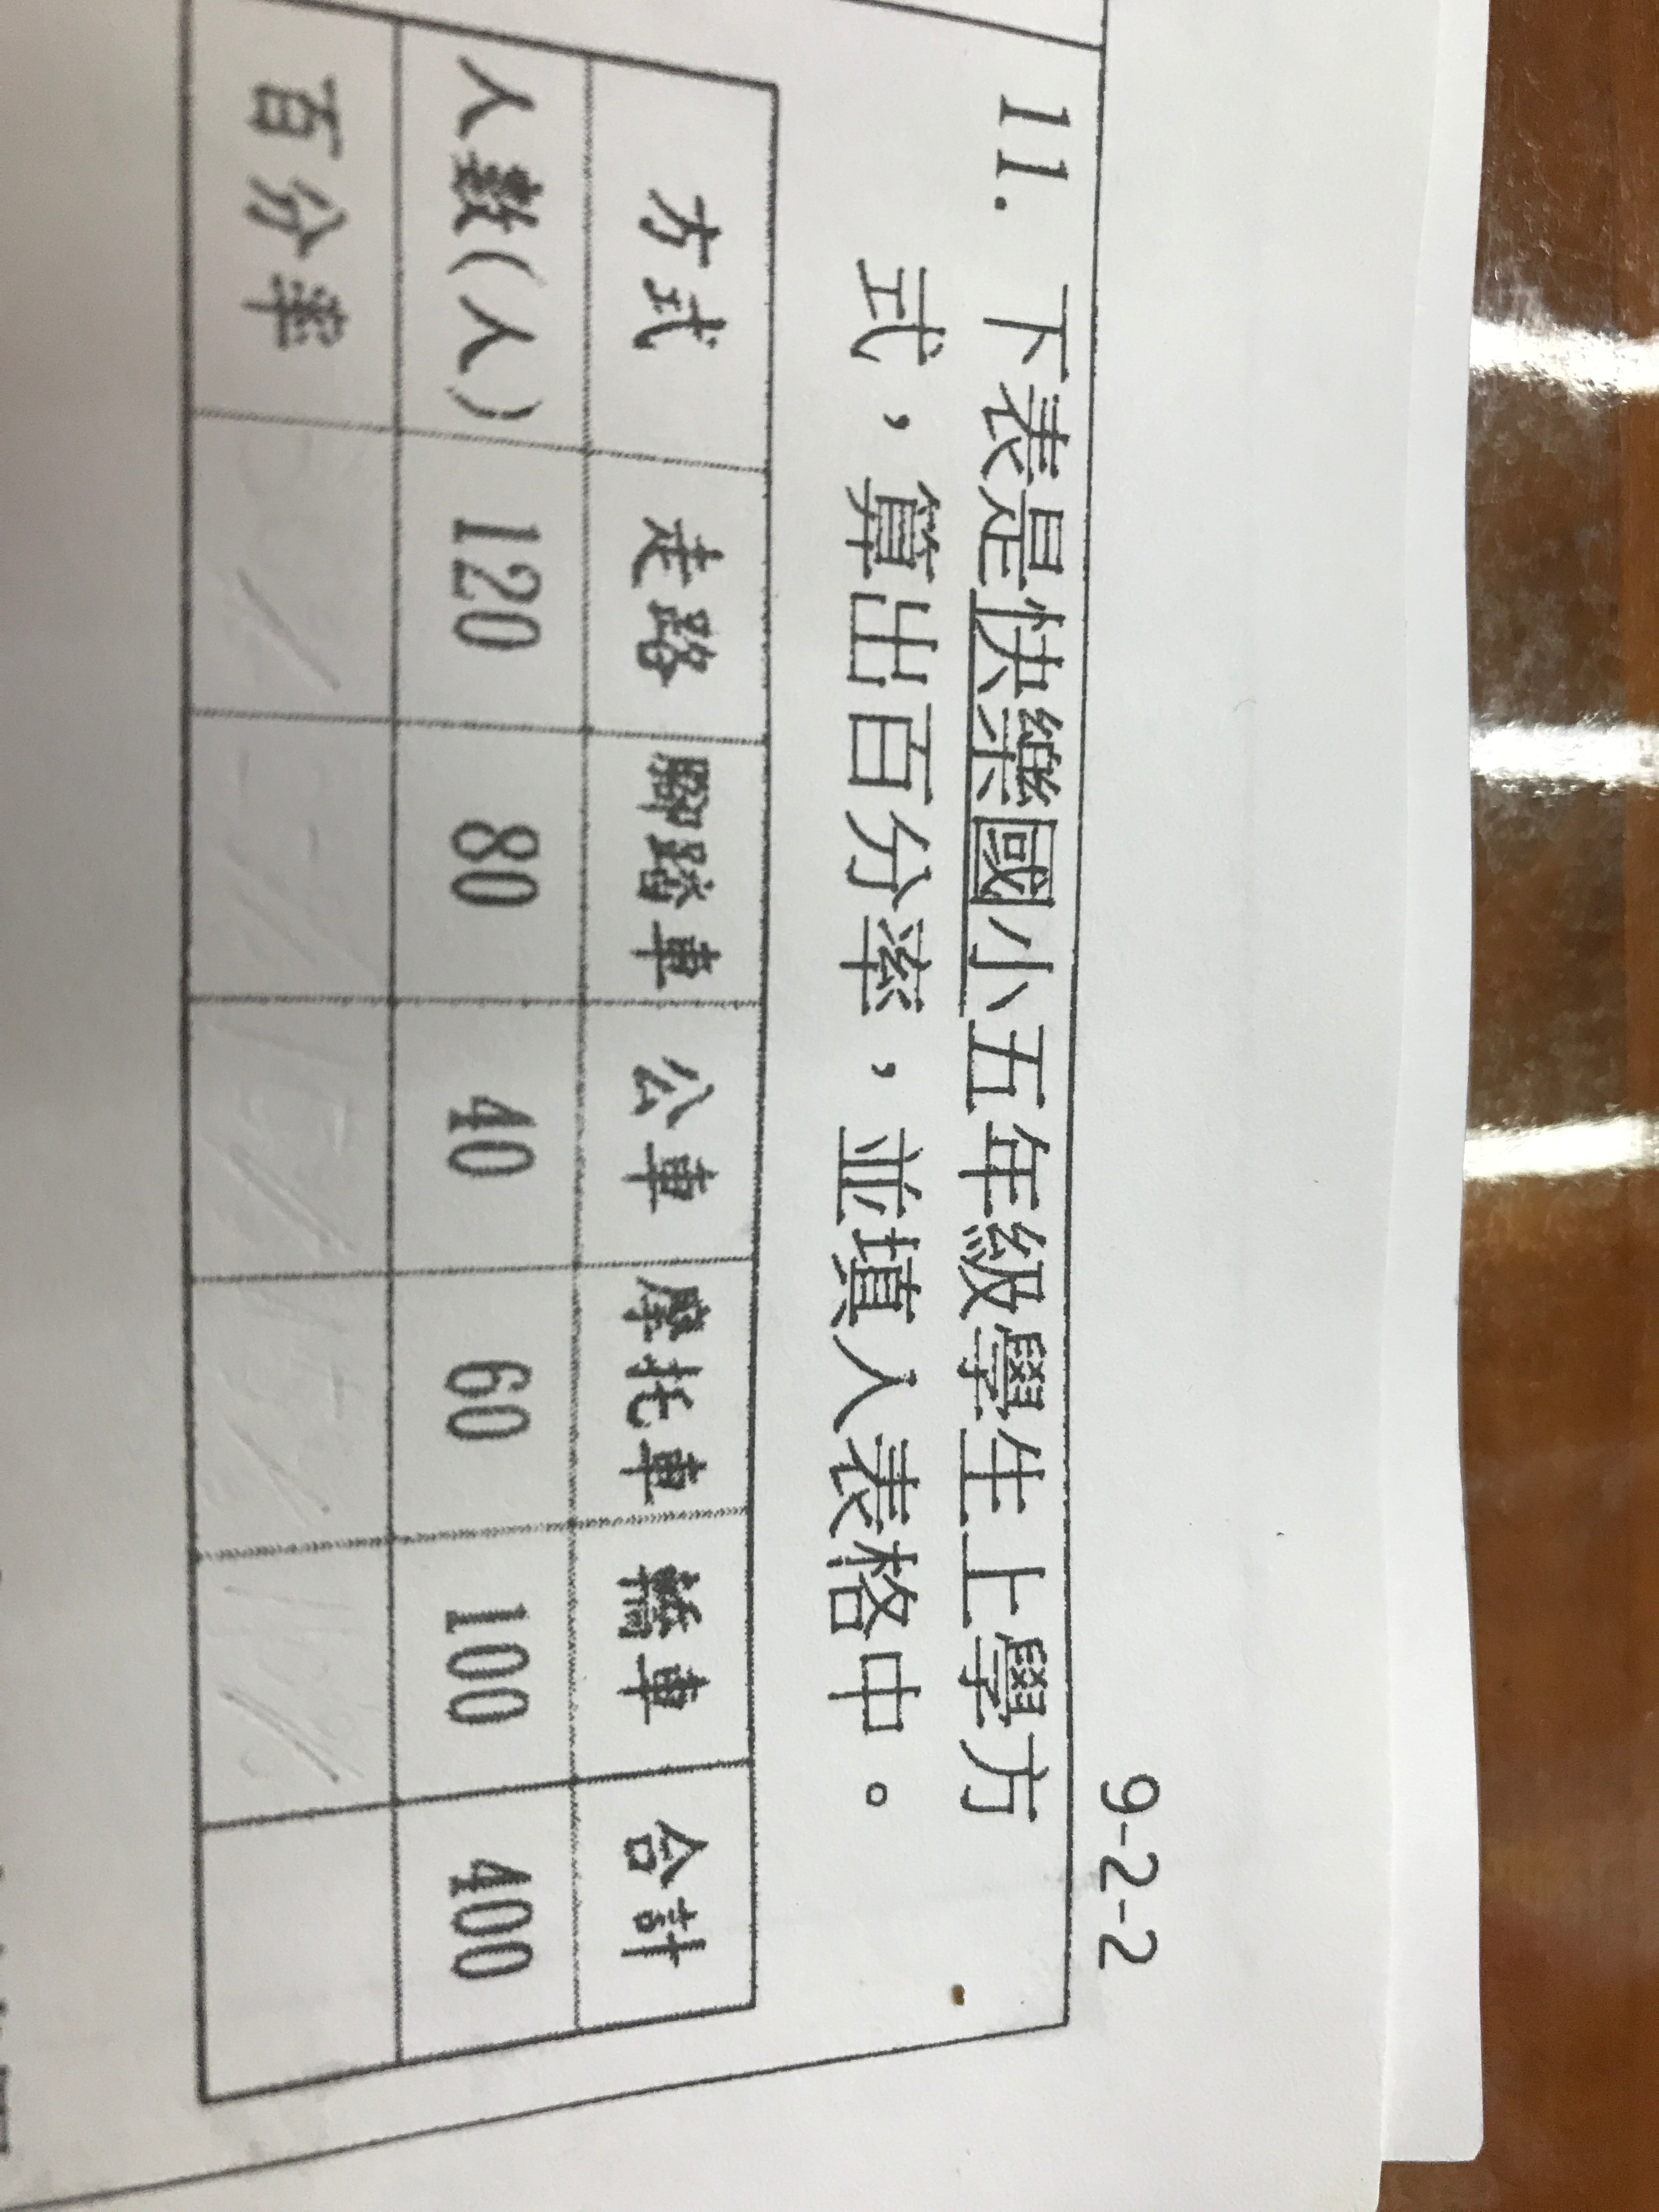 9-2-2
11. 下表是快樂國小五年級學生上學方
式，算出百分率，並填入表格中。
方式 走路 腳踏車 公車 摩托車 轎車 合計
人數(人) 120 80 40 60 100 400
百分率